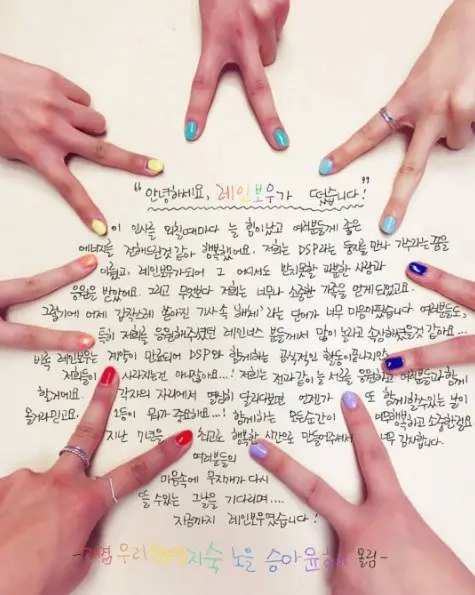 "안녕하세요, 레인보우가 떴습니다!"
이 인사를 외칠때마다 늘 힘이났고 여러분들께 좋은
에너지를 전해드린것 같아 행복했어요. 저희는 DSP라는 둥지를 만나 가수라는 꿈을
이뤘고, 레인보우가되어 그 어디서도 받지못할 과분한 사랑과
응원을 받았어요. 그리고 무엇보다 저희는 너무나 소중한 가족을 얻게 되었고요.
그렇기에 어제 갑작스레 쏟아진 기사 속 '해체'라는 단어가 너무 마음아팠습니다 여러분들도,
특히 저희를 응원해주셨던 레인너스 분들께서 많이 놀라고 속상하셨을것 같아요...
비록 레인보우는 계약이 만료되어 DSP와 함께하는 공식적인 활동이끝났지만
저희들이 사라지는건 아니잖아요...! 저희는 전과같이 늘 서로를 응원하고 여러분들과함께
할거예요. 각자의 자리에서 열심히 달리다보면 언젠가 또 함께할수있는 날이
올거라믿고요. 1등이 뭐가 중요해요...! 함께하는 모든순간이 행복하고 소중한걸요.
지난 7년을 최고로 행복한 시간으로 만들어주셔서 너무 감사합니다.
여러분들의
마음속에 무지개가 다시
뜰 수있는 그날을 기다리며....
지금까지 레인보우였습니다!
-재경 우리 현영 지숙 노을 승아 윤혜 올림-